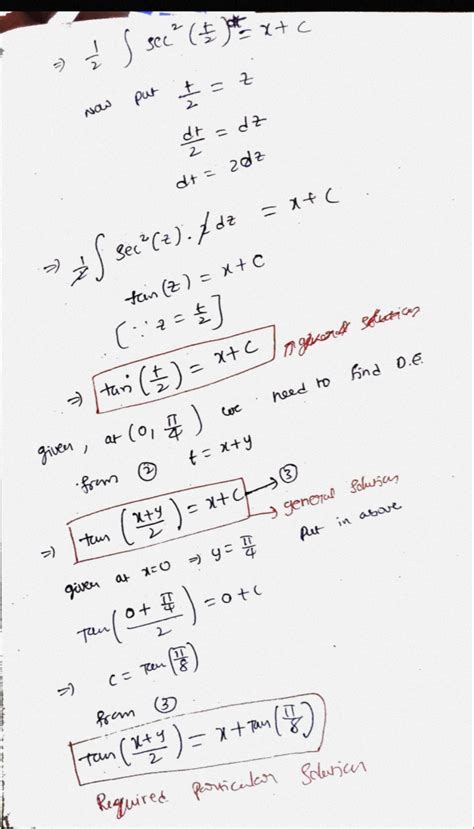 ⇒ 1/2 ∫ sec²(t/2) dt = x+C
Now put t/2 = z
dt/2 = dz
dt = 2dz
⇒ 1/2 ∫ sec²(z) . 2dz = x+C
tan(z) = x+C
[∵ z = t/2]
⇒ tan(t/2) = x+C → general solution
given, at (0, π/4) we need to find D.E.
from ② t = x+y
⇒ tan((x+y)/2) = x+C → ③
→ general solution
given at x=0 ⇒ y = π/4 put in above
Tan((0 + π/4)/2) = 0+C
⇒ C = Tan(π/8)
from ③
tan((x+y)/2) = x+Tan(π/8)
Required particular solution